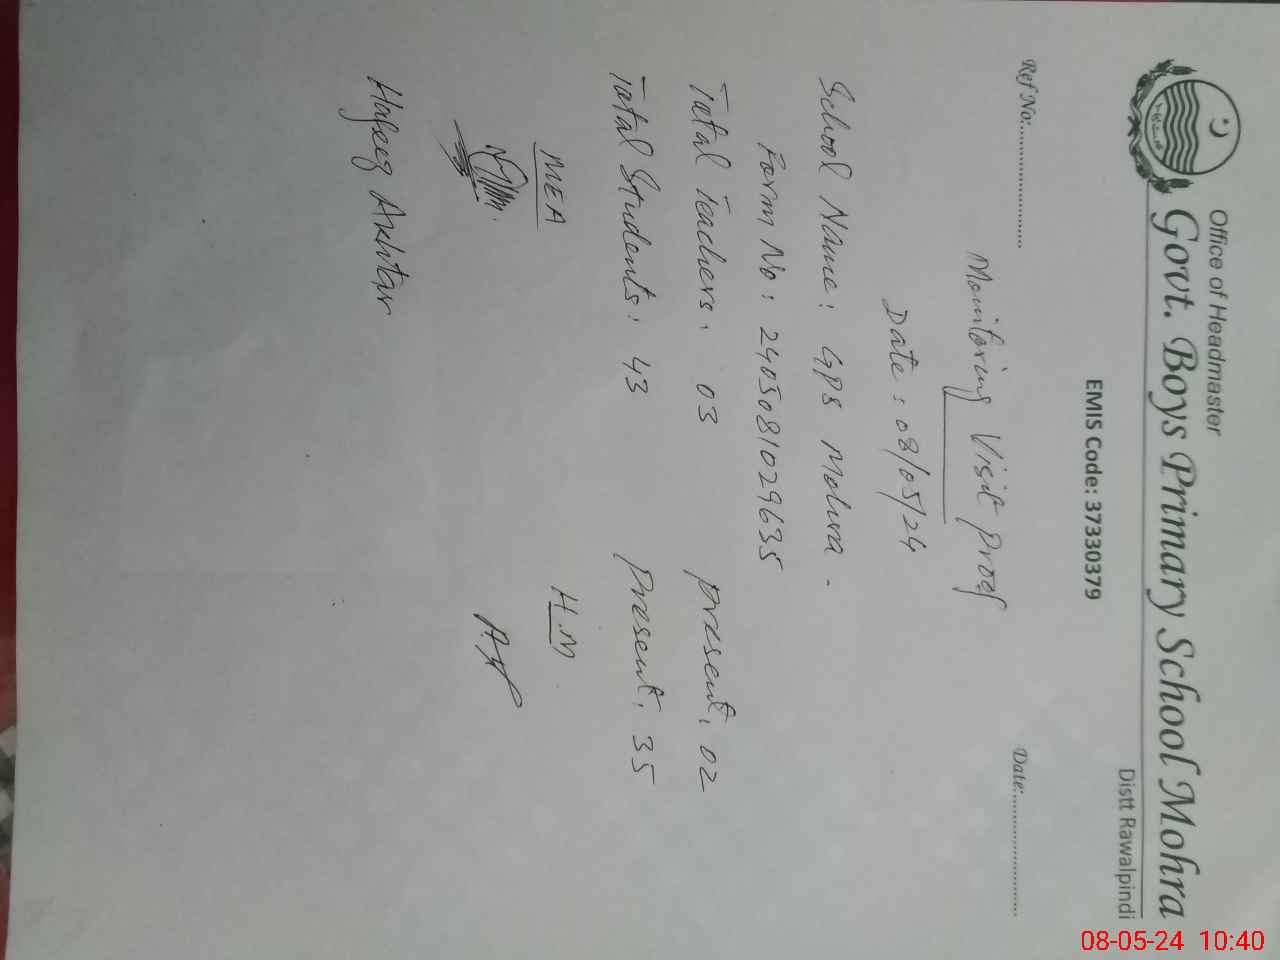 Office of Headmaster
Govt. Boys Primary School Mohra
Distt Rawalpindi
EMIS Code: 37330379
Ref No:........................ Date:........................
Monitoring Visit Proof
Date: 08/05/24
School Name: GPS Mohra.
Form No: 240508102 9635
Total Teachers: 03 present: 02
Total Students: 43 Present: 35
MEA H.M
Hafeez Akhtar
08-05-24 10:40